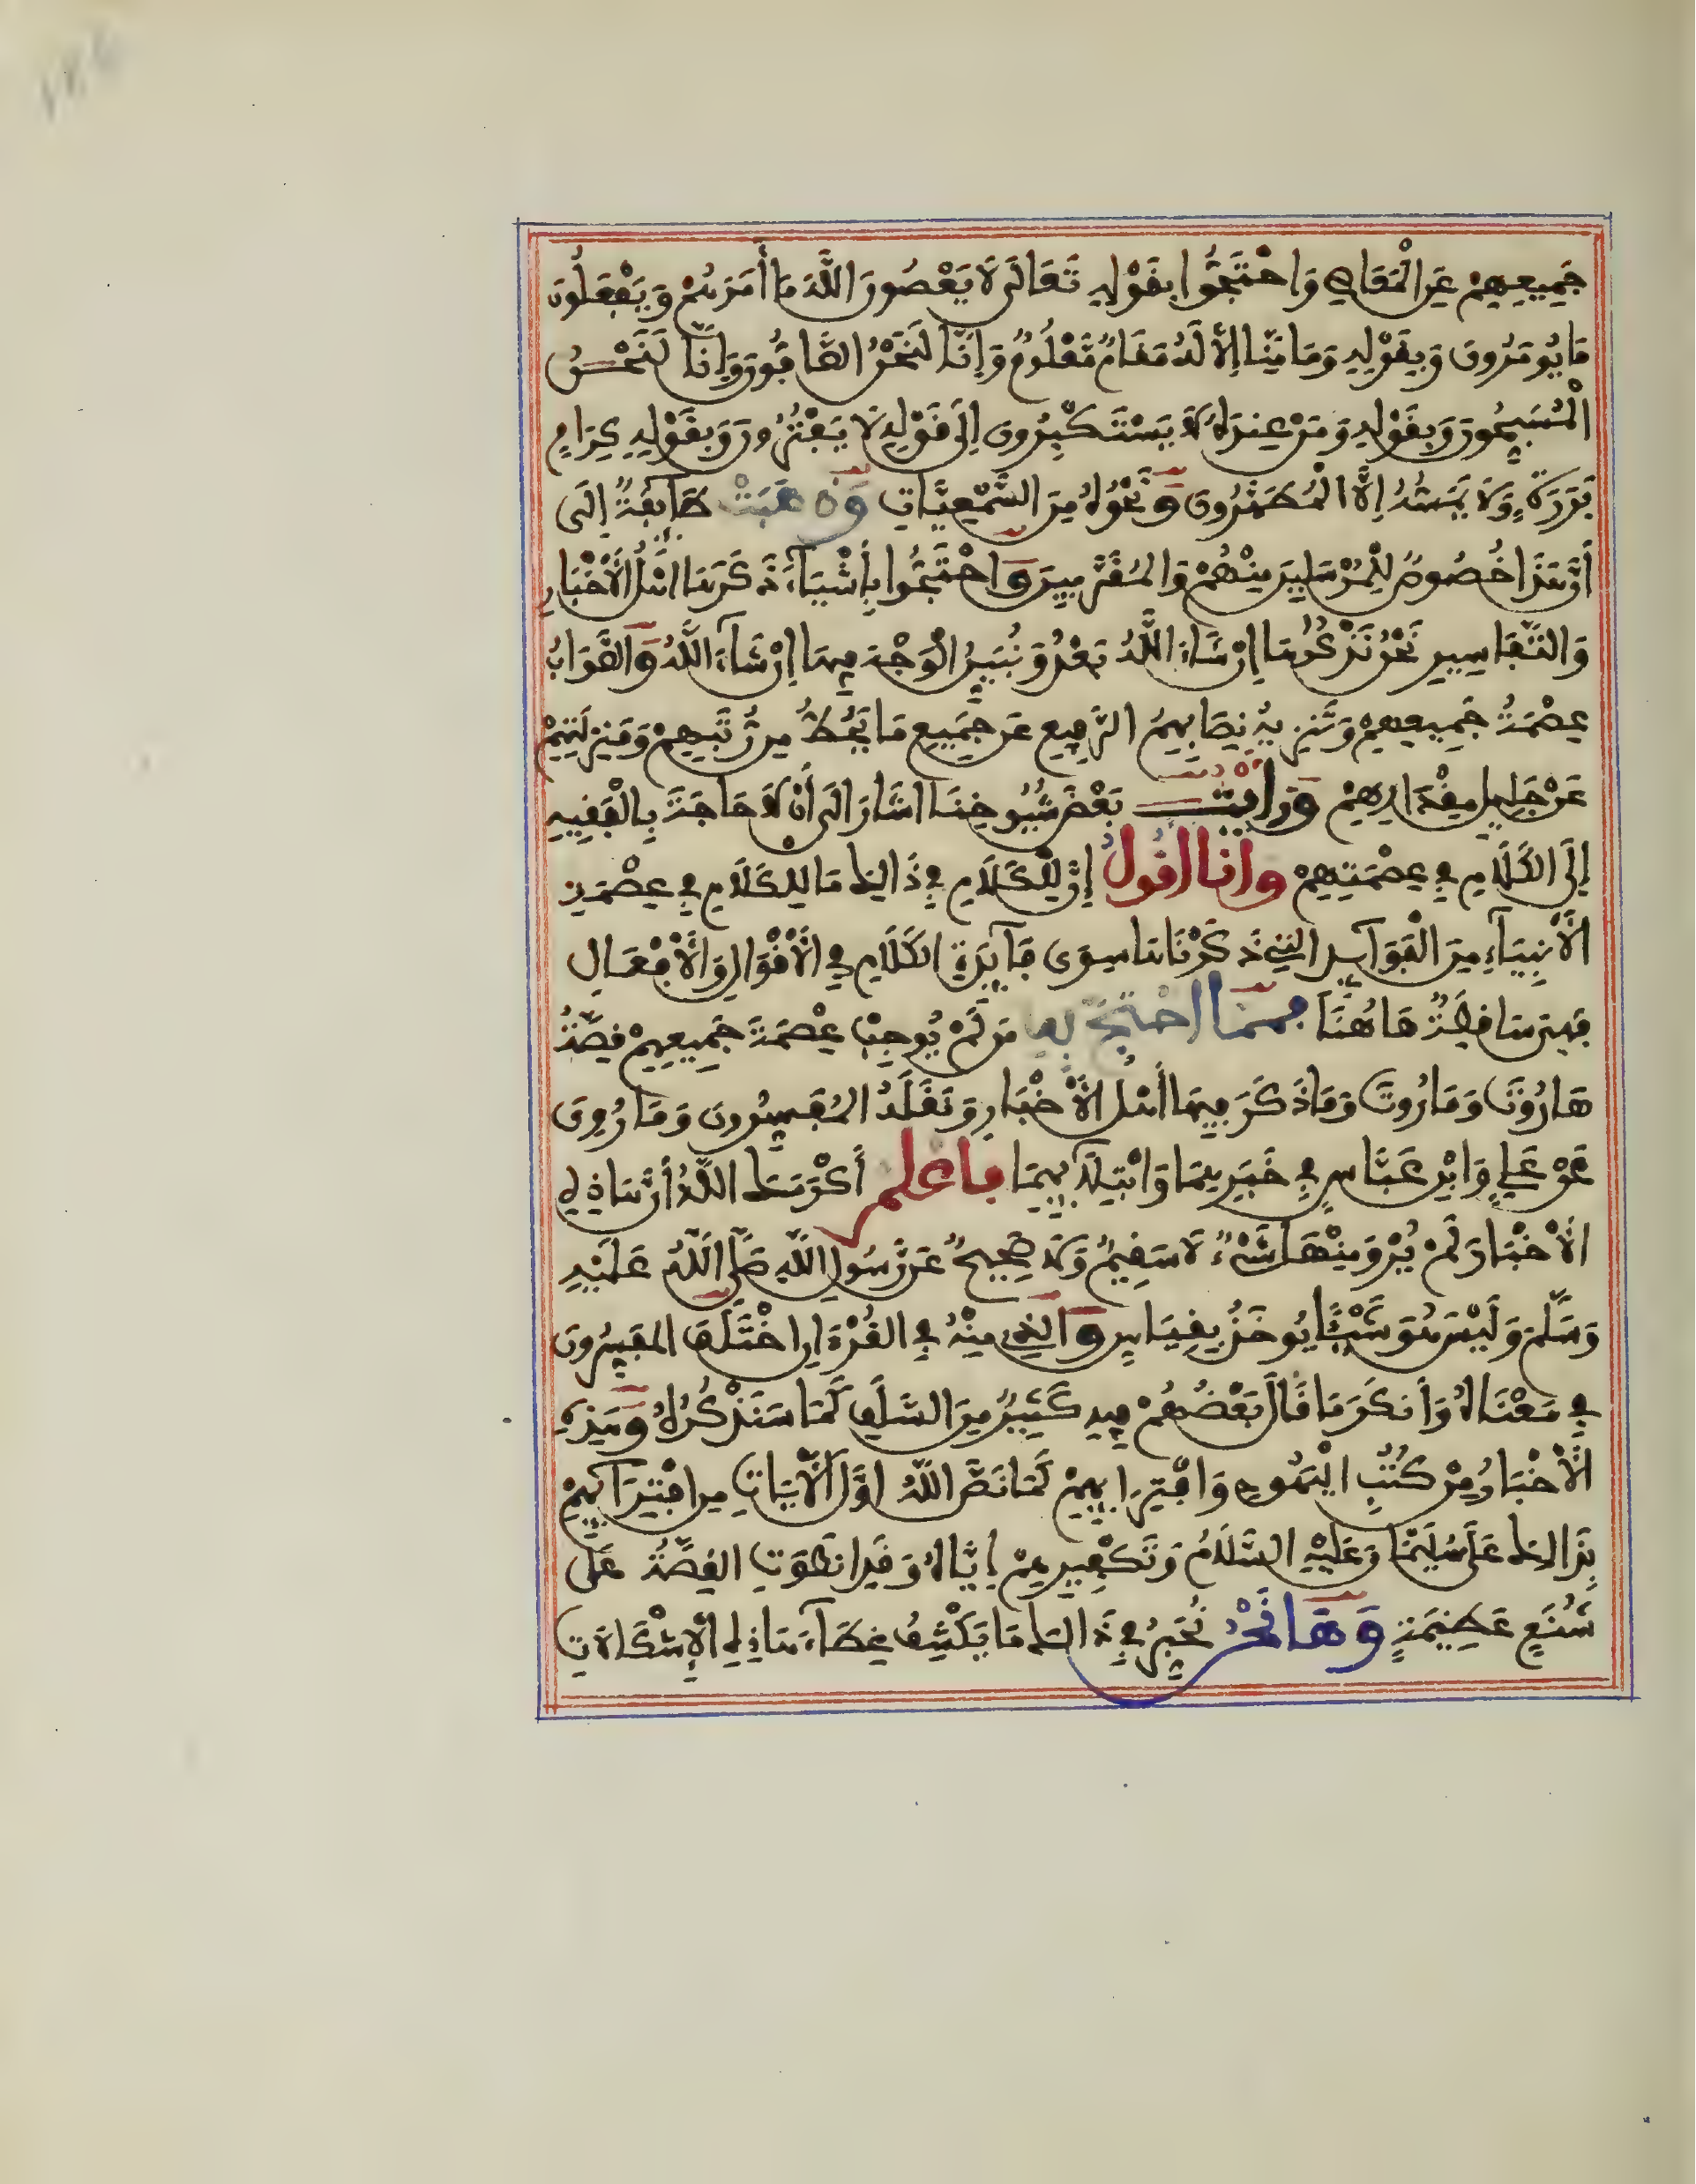 جَمِيعِهِمْ عَنِ الْمَعَاصِي وَاحْتَجُّوا بِقَوْلِهِ تَعَالَى لَا يَعْصُونَ اللَّهَ مَا أَمَرَهُمْ وَيَفْعَلُونَ
مَا يُومَرُونَ وَبِقَوْلِهِ وَمَا مِنَّا إِلَّا لَهُ مَقَامٌ مَّعْلُومٌ وَإِنَّا لَنَحْنُ الصَّافُّونَ وَإِنَّا لَنَحْنُ
الْمُسَبِّحُونَ وَبِقَوْلِهِ وَمَنْ عِندَهُ لَا يَسْتَكْبِرُونَ إِلَى قَوْلِهِ لَا يَفْتُرُونَ وَبِقَوْلِهِ كِرَامٍ
بَرَرَةٍ وَلَا يَمَسُّهُ إِلَّا الْمُطَهَّرُونَ وَنَحْوِهِ مِنَ السَّمْعِيَّاتِ وَذَهَبَتْ طَائِفَةٌ إِلَى
أَنَّ هَذَا خُصُوصٌ لِلْمُرْسَلِينَ مِنْهُمْ وَالْمُقَرَّبِينَ وَاحْتَجُّوا بِأَشْيَاءَ ذَكَرَهَا أَهْلُ الْأَخْبَارِ
وَالتَّفَاسِيرِ نَحْنُ نَذْكُرُهَا إِنْ شَاءَ اللَّهُ بَعْدُ وَنُبَيِّنُ الْوَجْهَ فِيهَا إِنْ شَاءَ اللَّهُ وَالصَّوَابُ
عِصْمَةُ جَمِيعِهِمْ وَتَنْزِيهُ نِصَابِهِمُ الرَّفِيعِ عَنْ جَمِيعِ مَا يَحُطُّ مِنْ رُّتَبِهِمْ وَمَنْزِلَتِهِمْ
عَنْ جَلِيلِ مِقْدَارِهِمْ وَرَأَيْتُ بَعْضَ شُيُوخِنَا أَشَارَ إِلَى أَنْ لَا حَاجَةَ بِالْفَقِيهِ
إِلَى الْكَلَامِ فِي عِصْمَتِهِمْ وَأَنَا أَقُولُ إِنَّ لِلْكَلَامِ فِي ذَالِكَ مَا لِلْكَلَامِ فِي عِصْمَةِ
الْأَنْبِيَاءِ مِنَ الْفَوَائِدِ الَّتِي ذَكَرْنَاهَا سِوَى فَائِدَةِ الْكَلَامِ فِي الْأَقْوَالِ وَالْأَفْعَالِ
فَهِيَ سَاقِطَةٌ هَاهُنَا فَمِمَّا احْتَجَّ بِهِ مَنْ لَمْ يُوجِبْ عِصْمَةَ جَمِيعِهِمْ قِصَّةُ
هَارُوتَ وَمَارُوتَ وَمَا ذَكَرَ فِيهَا أَهْلُ الْأَخْبَارِ وَنَقَلَهُ الْمُفَسِّرُونَ وَمَا رُوِيَ
عَنْ عَلِيٍّ وَابْنِ عَبَّاسٍ فِي خَبَرِهِمَا وَابْتِلَائِهِمَا فَاعْلَمْ أَكْرَمَكَ اللَّهُ أَنَّ هَاذِهِ
الْأَخْبَارَ لَمْ يُرْوَ مِنْهَا شَيْءٌ لَا سَقِيمٌ وَلَا صَحِيحٌ عَن رَّسُولِ اللَّهِ صَلَّى اللَّهُ عَلَيْهِ
وَسَلَّمَ وَلَيْسَ هُوَ شَيْئًا يُوخَذُ بِقِيَاسٍ وَالَّذِي مِنْهُ فِي الْقُرْءَانِ اخْتَلَفَ الْمُفَسِّرُونَ
فِي مَعْنَاهُ وَأَنكَرَ مَا قَالَ بَعْضُهُمْ فِيهِ كَثِيرٌ مِنَ السَّلَفِ كَمَا سَنَذْكُرُهُ وَهَذِهِ
الْأَخْبَارُ مِنْ كُتُبِ الْيَهُودِ وَافْتِرَائِهِمْ كَمَا نَصَّ اللَّهُ أَوَّلَ الْآيَاتِ مِنِ افْتِرَائِهِمْ
بِذَالِكَ عَلَى سُلَيْمَانَ عَلَيْهِ السَّلَامُ وَتَكْفِيرِهِمْ إِيَّاهُ وَقَدِ انطَوَتِ الْقِصَّةُ عَلَى
شُنَعٍ عَظِيمَةٍ وَهَا نَحْنُ نُحَبِّرُ فِي ذَالِكَ مَا يَكْشِفُ غِطَاءَ هَاذِهِ الْإِشْكَالَاتِ